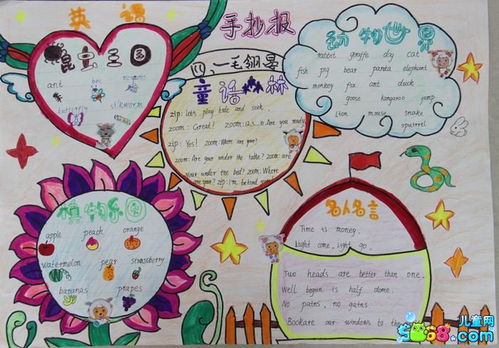 英语
手抄报
昆虫王国
ant
bee
butterfly
silkworm
四、一毛翎墨
童话森林
zip: Let's play hide and seek.
zoom: Great! zoom: 1 2 3
Are you ready
zip: Yes! zoom: Where are you?
zoom: Are you under the table? zoom: are
under the bed? zoom: Where
are you? zip: I'm behind
动物世界
rabbit giraffe dog cat
fish pig bear panda elephant
monkey fox ant duck
goose kangaroo
lion mouse snake
squirrel
植物乐园
apple peach orange
watermelon pear strawberry
bananas grapes
名人名言
Time is money.
Light come, light go.
Two heads are better than one.
Well begun is half done.
No pains, no gains
Books are our windows to the
5068.com
儿童网